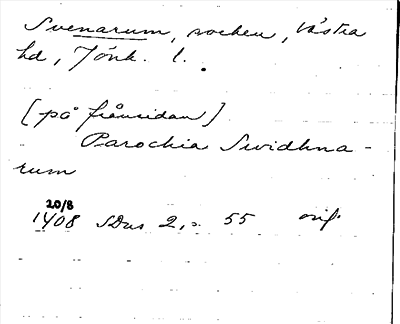 Svenarum, socken, Västra
hd, Jönk. l.
[på frånsidan]
Parochia Swidhna-
rum
20/8
1408 SDns 2, s. 55 orig.